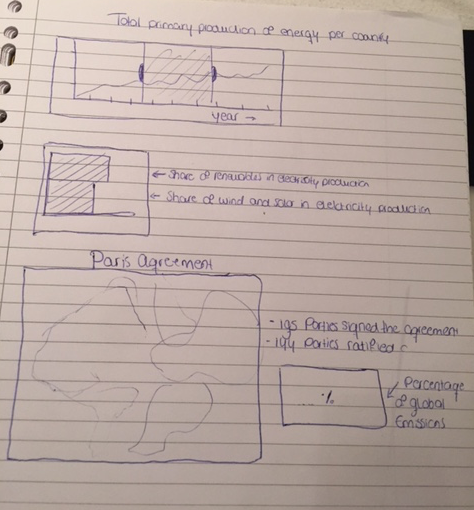 Total primary production of energy per country
year →
← Share of renewables in electricity production
← Share of wind and solar in electricity production
Paris agreement
- 195 Parties signed the agreement
- 194 Parties ratified
%
Percentage
of global
Emissions